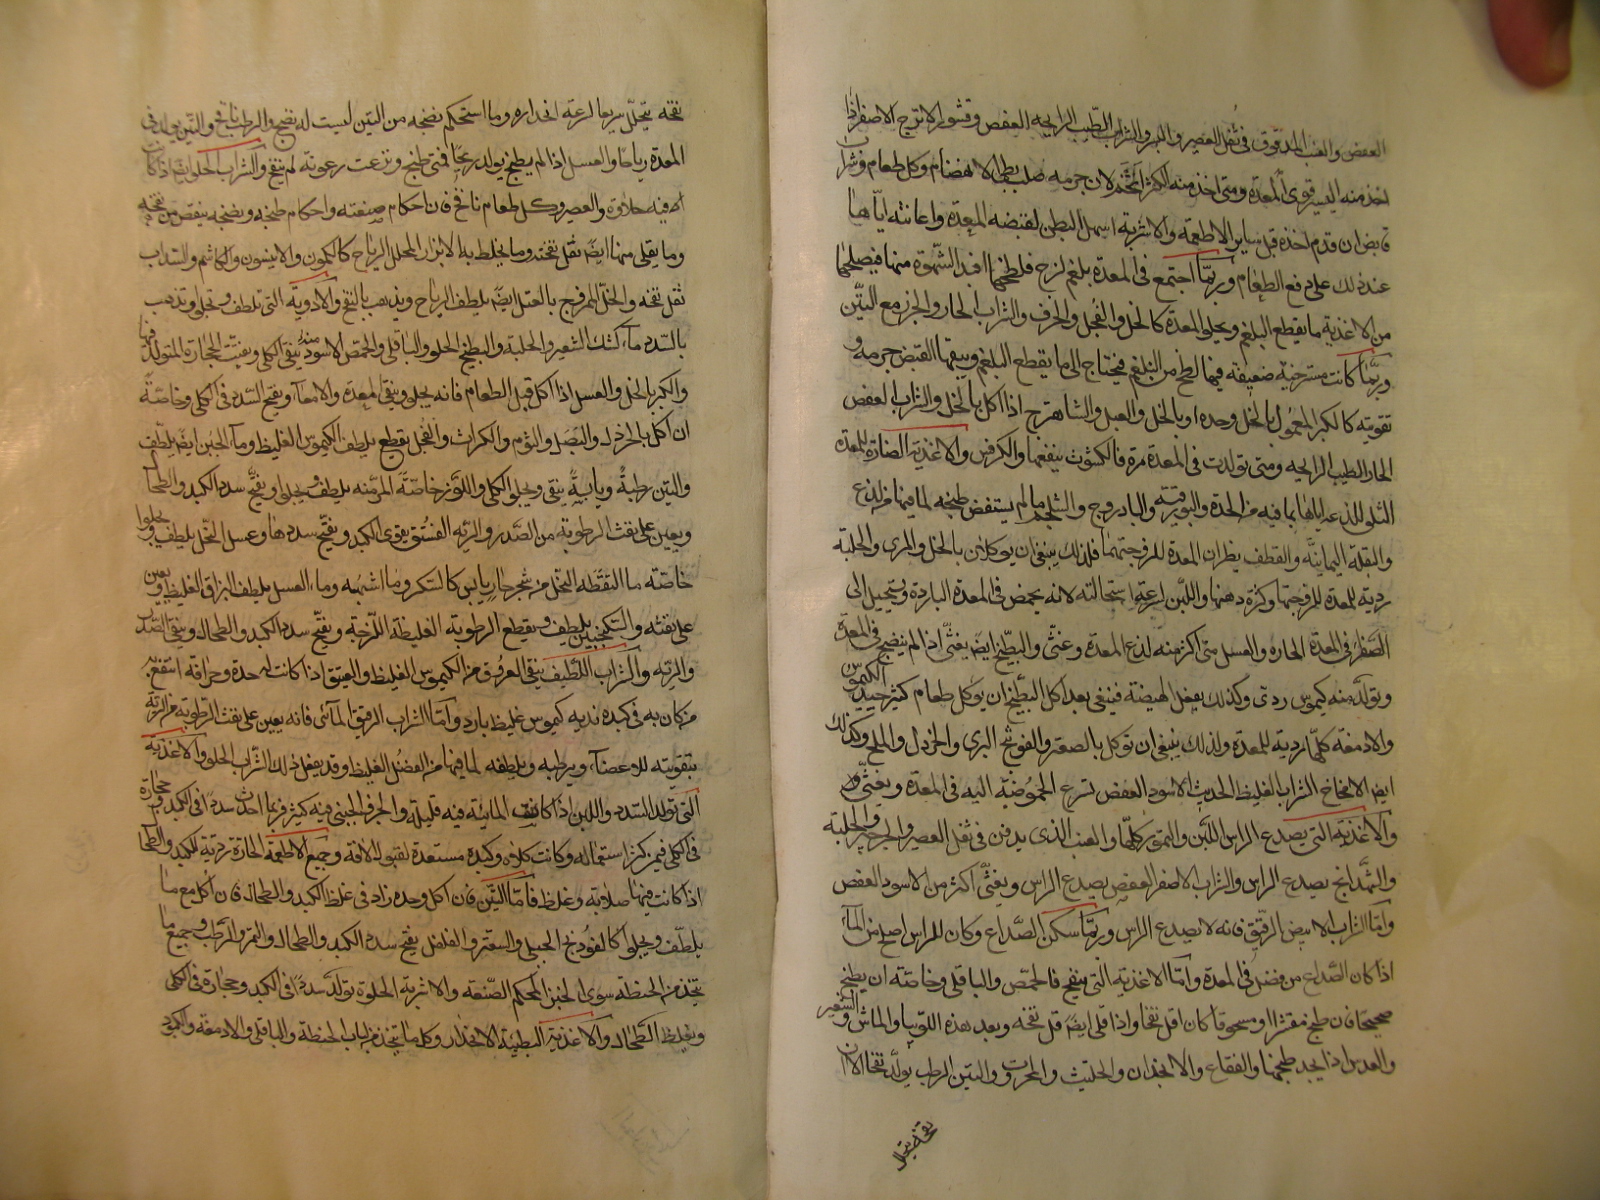 العفص والعنب المدقوق فى ثفل العصير والشراب الطيب الرايحه العفص وقشور الاترج الاصفر اذا
اخذ منه اليسير قوى المعدة ومتى اخذ منه اكثر لان جرمه صلب بطى الانهضام وكل طعام وشراب
قابض ان قدم اخذه قبل ساير الاطعمة والاشربة اسهل البطن لقبضه المعدة واعانته اياها
عند ذلك على دفع الطعام وربما اجتمع فى المعدة بلغم لزج فلطخها افسد الشهوة منها فيصلحها
من الاغذية ما يقطع البلغم ويجلوا المعدة كالخل والفجل والخرف والشراب الحار والجزر مع التين
وربما كانت مسترخية ضعيفة فيها لطخ من البلغم فيحتاج الى ما يقطع البلغم القبض جرمه و
تقويته كالكبر المعمول بالخل وحده او بالخل والعسل والشاهترج اذا اكل بالخل والشراب العفص
الحار الطيب الرايحه ومتى تولدت فى المعدة مرة فالكشوث ينفعها والكرفس والاغذية الضارة للمعدة
السلق للذعه اياها بما فيه من الحدة والبورقية والبادروج والشلجم ما لم يستقص طبخه لما فيها من لذع
والبقلة اليمانية والقطف يضران المعدة للزوجتهما فلذلك ينبغى ان يوكلان بالخل والمرى والحلبة
ردية للمعدة للزوجتها وكثرة دهنها واللبن لسرعة استحالته لانه يحمض فى المعدة الباردة ويستحيل الى
الصفرا فى المعدة الحاره والعسل متى اكثر منه لذع المعدة وغثى والبطيخ ايضا يغثى اذا لم ينضج فى المعدة
وتولد منه كيموس ردى وكذلك يفعل الهيضة فينبغى بعد اكل البطيخ ان يوكل طعام كثير جيد الكيموس
والادمغة كلها ردية للمعدة ولذلك ينبغى ان توكل بالصعتر والفوتنج البرى والخردل والملح وكذلك
ايضا الامخاخ الشراب الغليظ الحديث الاسود العفص تسرع الحموضة اليه فى المعدة ويغثى
والاغذية التى يصدع الراس اللبن والتمور كلها والعنب الذى يدفن فى ثفل العصير والجرجير والحلبة
والشهدانج يصدع الراس والشراب الاصفر العفص يصدع الراس ويغثى اكثر من الاسود العفص
واما الشراب الابيض الرقيق فانه لا يصدع الراس وربما سكن الصداع وكان للراس اصلح من الماء
اذا كان الصداع من فضل فى المعدة واما الاغذية التى ينفخ فالحمص والباقلى وخاصته ان يطبخ
صحيحا فان طبخ مقشرا او مسحوقا كان اقل نفخا واذا قلى ايضا قل نفخه وبعد هذه اللوبيا والماش والشعير
والعدس اذا لم يجد طبخها والفقاع والانجذان والحلتيث والمحروث والتين الرطب يولد نفخا الا ان
نفخه يتحلل
نفخه يتحلل سريعا لسرعة انحداره وما استحكم نضجه من التين ليست له نفخ والرطب نافخ والتين يولد فى
المعدة رياحا والعسل اذا لم يطبخ يولد ريحا فمتى طبخ ونزعت رغوته لم ينفخ والشراب الحلو ايضا اذا كانت
فيه حلاوة والعصير وكل طعام نافخ فان احكام صنعته واحكام طبخه ونضجه ينقص من نفخه
وما يقلى منها ايضا تقل نفخته وما يخلط به الابزار المحلل الرياح كالكمون والانيسون والكاشم والسداب
تقل نفخه والخل الممزوج بالعسل ايضا يلطف الرياح ويذهب بالنفخ والادوية التى تلطف وتجلو وتذهب
بالسدد ماء كشك الشعير والحلبة والبطيخ الحلو والباقلى والحمص الاسود منه ينقى الكلى ويفتت الحجارة المتولد فيها
والكبر بالخل والعسل اذا اكل قبل الطعام فانه يجلو وينقى المعدة والامعاء ويفتح السدد فى الكلى وخاصة
ان اكل بالخردل والبصل والثوم والكراث والفجل يقطع يلطف الكيموس الغليظ وماء الجبن ايضا يلطف
والتين رطبة ويابسة ينقى ويجلوا الكلى واللوز خاصة المر منه يلطف ويجلو ويفتح سدد الكبد والطحال
ويعين على نفث الرطوبة من الصدر والرئه الفستق يقوى الكبد ويفتح سددها وعسل النحل يلطف ويجلوا
خاصته ما التقطه النحل من شجر حار يابس كالسكر وما اشبهه وماء العسل يلطف البزاق الغليظ ويعين
على نفثه والسكنجبين يلطف ويقطع الرطوبة الغليظة اللزجة ويفتح سدد الكبد والطحال وينقى الصدر
والرئه والشراب اللطيف ينقى العروق من الكيموس الغليظ والعتيق اذا كانت له حدة وحرافة انتفع به
من كان به فى كبده كيموس غليظ بارد واما الشراب الرقيق المائى فانه يعين على نفث الرطوبة من الرئه
بتقويته للاعضاء ويرطبه ويلطفه لما فيها من الفضل الغليظ وقد يفعل ذلك الشراب الحلو والاغذية
التى تولد السدد واللبن اذا كانت المائية فيه قليلة والجزء الجبنى فيه كثير فربما احدث سددا فى الكبد وحجارة
فى الكلى فيمن كثر استعماله وكانت كلاه وكبده مستعدة لقبول الافة وجميع الاطعمة الحارة ردية للكبد والطحال
اذا كانت فيها صلابة وغلظ فاما التين فان اكل وحده زاد فى غلظ الكبد والطحال فان اكل مع ما
يلطف ويجلوا كالفودنج الجبلى والسعتر والفلفل يفتح سدد الكبد والطحال والتمر والرطب وجميع ما
يتخذ من الحنطة سوى الخبز المحكم الصنعة والاشربة الحلوة تولد سددا فى الكبد وحجارة فى الكلى
ويغلظ الطحال والاغذية البطيئة الانحدار وكل ما يتخذ من لباب الحنطة والباقلى والادمغة والكبود